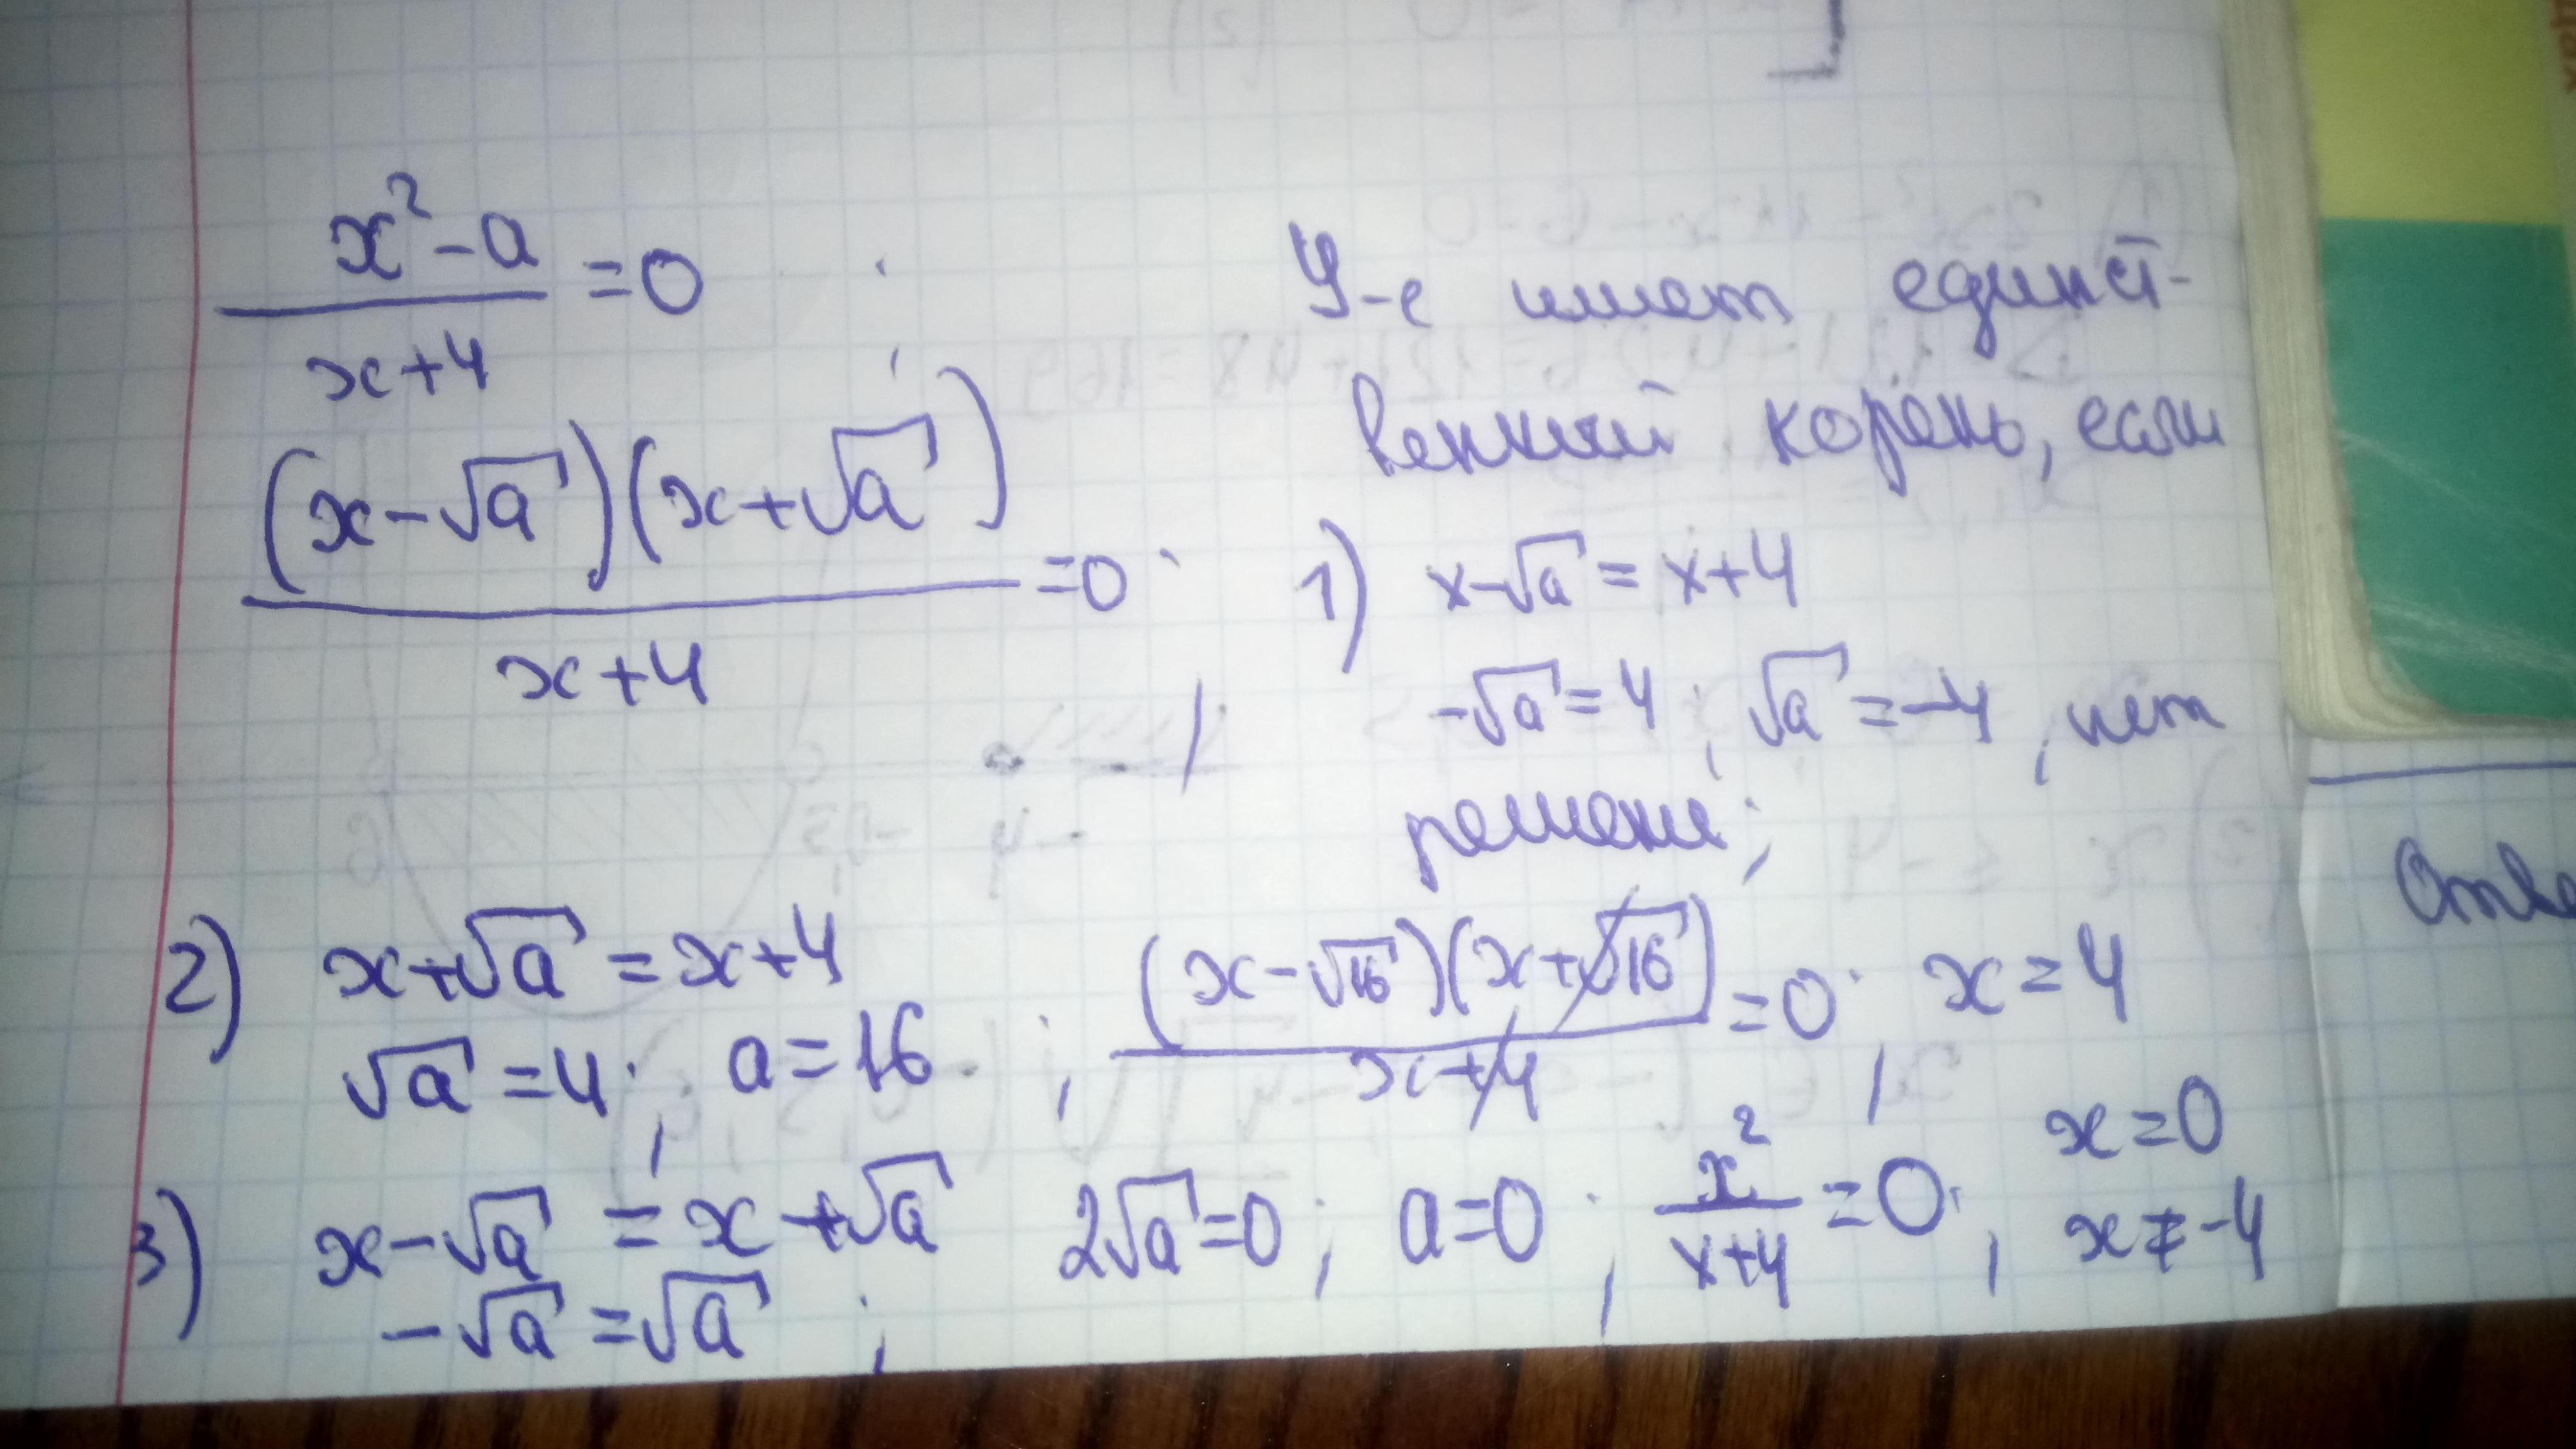 x²-a / x+4 =0;
(x-√a)(x+√a) / x+4 =0;
У-е имеет единст-
венный корень, если
1) x-√a = x+4
-√a=4; √a=-4, нет
решения;
2) x+√a=x+4
√a=4; a=16; (x-√16)(x+√16) / x+4 =0; x=4
3) x-√a = x+√a
-√a=√a; 2√a=0; a=0; x² / x+4 =0; x=0
x≠-4
Отве